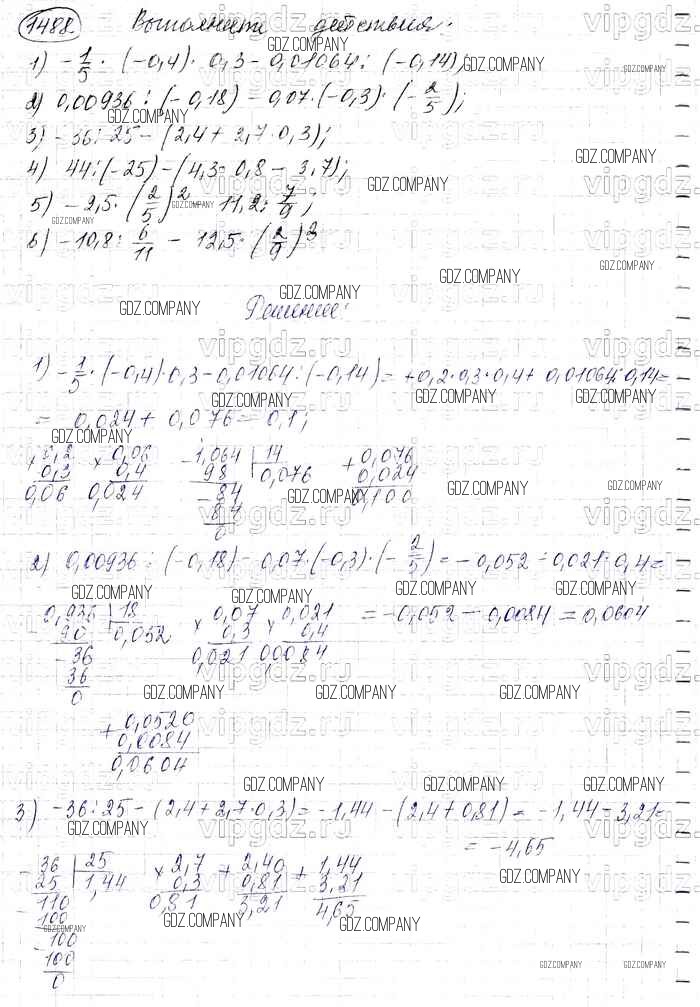 1488. Выполните действия:
1) -1/5 · (-0,4) · 0,3 - 0,01064 : (-0,14);
2) 0,00936 : (-0,18) - 0,07 · (-0,3) · (-2/5);
3) -36 : 25 - (2,4 + 2,7 · 0,3);
4) 44 : (-25) - (4,3 · 0,8 - 3,7);
5) -2,5 · (2/5)² 11,2 : 7/9;
6) -10,8 : 6/11 - 12,5 · (2/9)³
Решение:
1) -1/5 · (-0,4) · 0,3 - 0,01064 : (-0,14) = +0,2 · 0,3 · 0,4 + 0,01064 : 0,14 =
= 0,024 + 0,076 = 0,1;
× 0,2 0,3 0,06
× 0,06 0,4 0,024
1,064 14 98 0,076 84 84 0
+ 0,076 0,024 0,100
2) 0,00936 : (-0,18) - 0,07 · (-0,3) · (-2/5) = -0,052 - 0,021 · 0,4 =
= -0,052 - 0,0084 = 0,0604
0,936 18 90 0,052 36 36 0
× 0,07 0,3 0,021
× 0,021 0,4 0,0084
+ 0,0520 0,0084 0,0604
3) -36 : 25 - (2,4 + 2,7 · 0,3) = -1,44 - (2,4 + 0,81) = -1,44 - 3,21 =
= -4,65
36 25 25 1,44 110 100 100 100 0
× 2,7 0,3 0,81
+ 2,40 0,81 3,21
+ 1,44 3,21 4,65
GDZ.COMPANY
vipgdz.ru